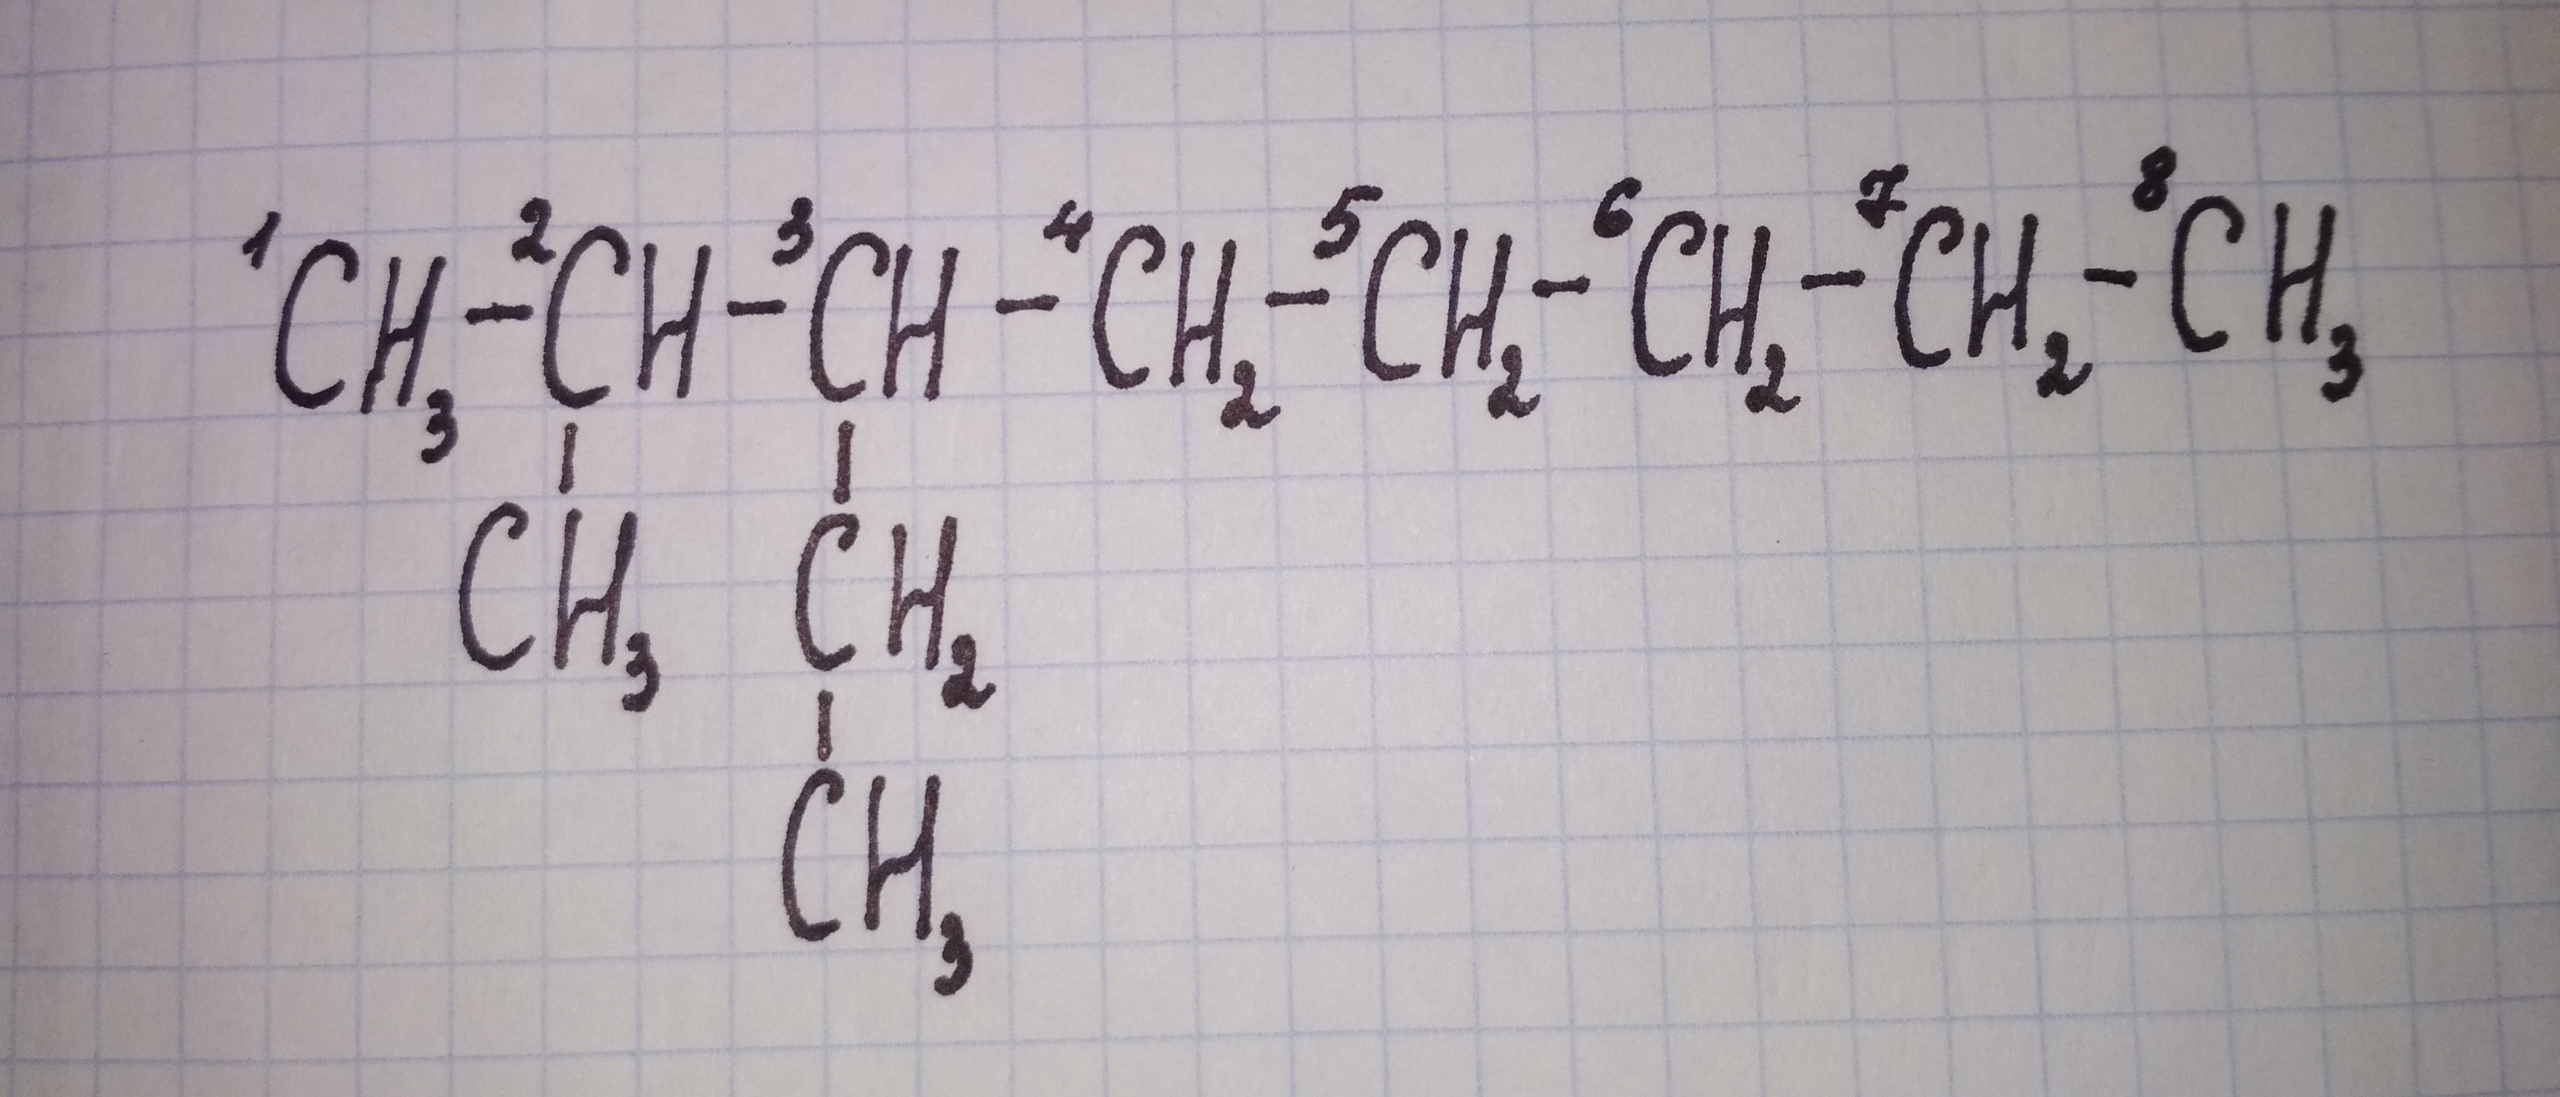 ¹CH₃-²CH-³CH-⁴CH₂-⁵CH₂-⁶CH₂-⁷CH₂-⁸CH₃
CH₃ CH₂
CH₃